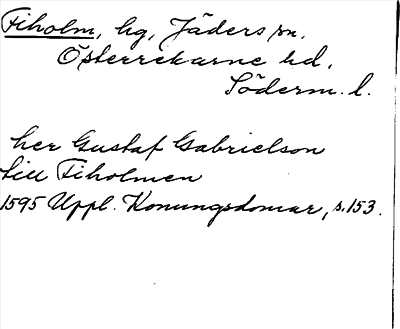 Fiholm, hg, Jäders sn.
Österrekarne hd,
Söderm. l.
her Gustaf Gabrielson
till Fiholmen
1595 Uppl. Konungsdomar, s. 153.